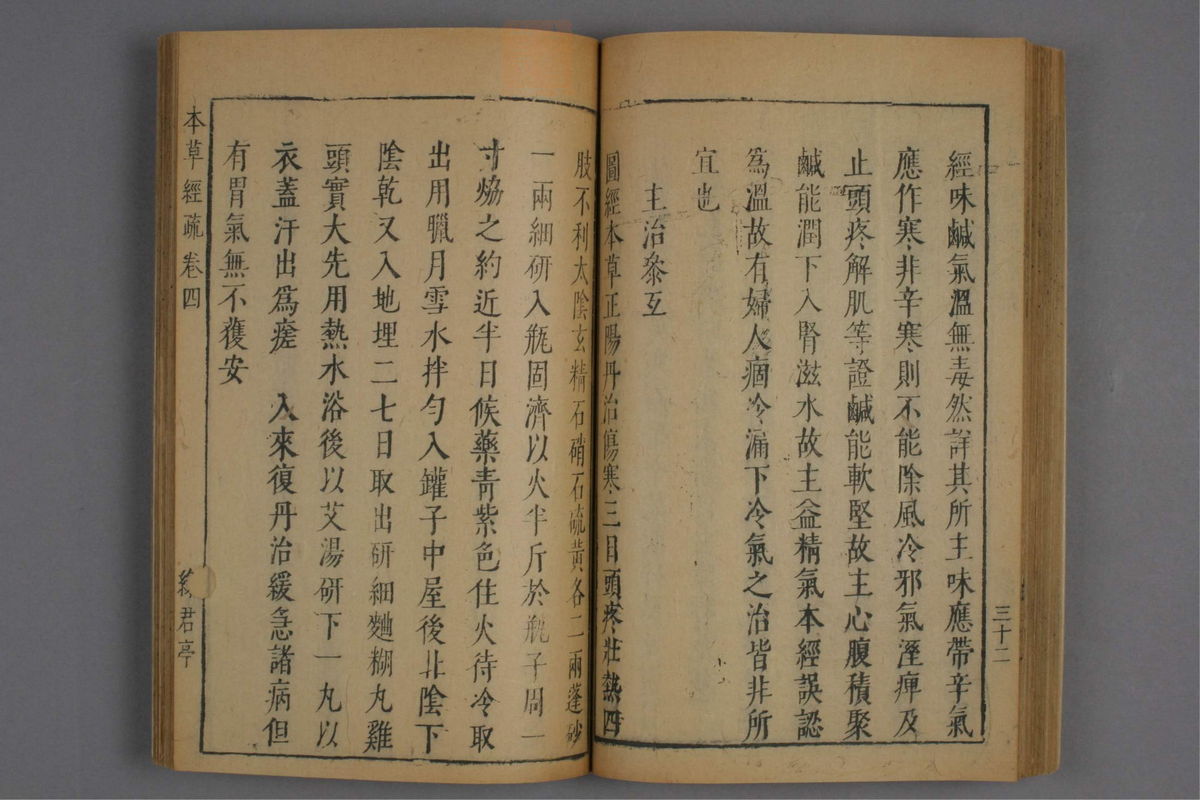 三十二
經味鹹氣溫無毒然詳其所主味應帶辛氣
應作寒非辛寒則不能除風冷邪氣溼痺及
止頭疼解肌等證鹹能軟堅故主心腹積聚
鹹能潤下入腎滋水故主益精氣本經誤認
為溫故有婦人痼冷漏下冷氣之治皆非所
宜也
主治叅互
圖經本草正陽丹治傷寒三日頭疼壯熱四
肢不利太陰玄精石硝石硫黃各二兩蓬砂
一兩細研入瓶固濟以火半斤於瓶子周一
寸熁之約近半日候藥青紫色住火待冷取
出用臘月雪水拌勻入罐子中屋後北陰下
陰乾又入地埋二七日取出研細麵糊丸雞
頭實大先用熱水浴後以艾湯研下一丸以
衣蓋汗出爲瘥 入來復丹治緩急諸病但
有胃氣無不獲安
本草經疏 卷四
綠君亭